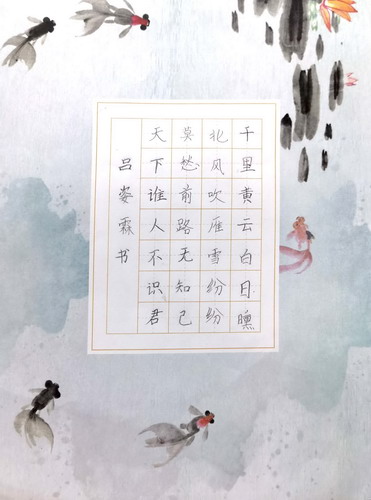 千里黄云白日曛
北风吹雁雪纷纷
莫愁前路无知己
天下谁人不识君
吕姿霖书